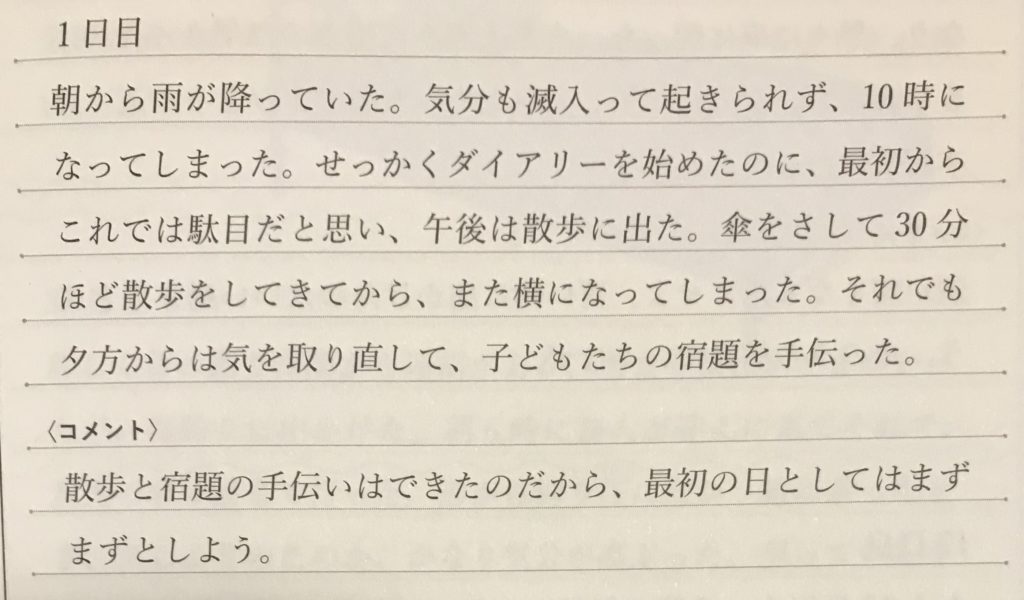 1日目
朝から雨が降っていた。気分も滅入って起きられず、10時に
なってしまった。せっかくダイアリーを始めたのに、最初から
これでは駄目だと思い、午後は散歩に出た。傘をさして30分
ほど散歩をしてきてから、また横になってしまった。それでも
夕方からは気を取り直して、子どもたちの宿題を手伝った。
〈コメント〉
散歩と宿題の手伝いはできたのだから、最初の日としてはまず
まずとしよう。